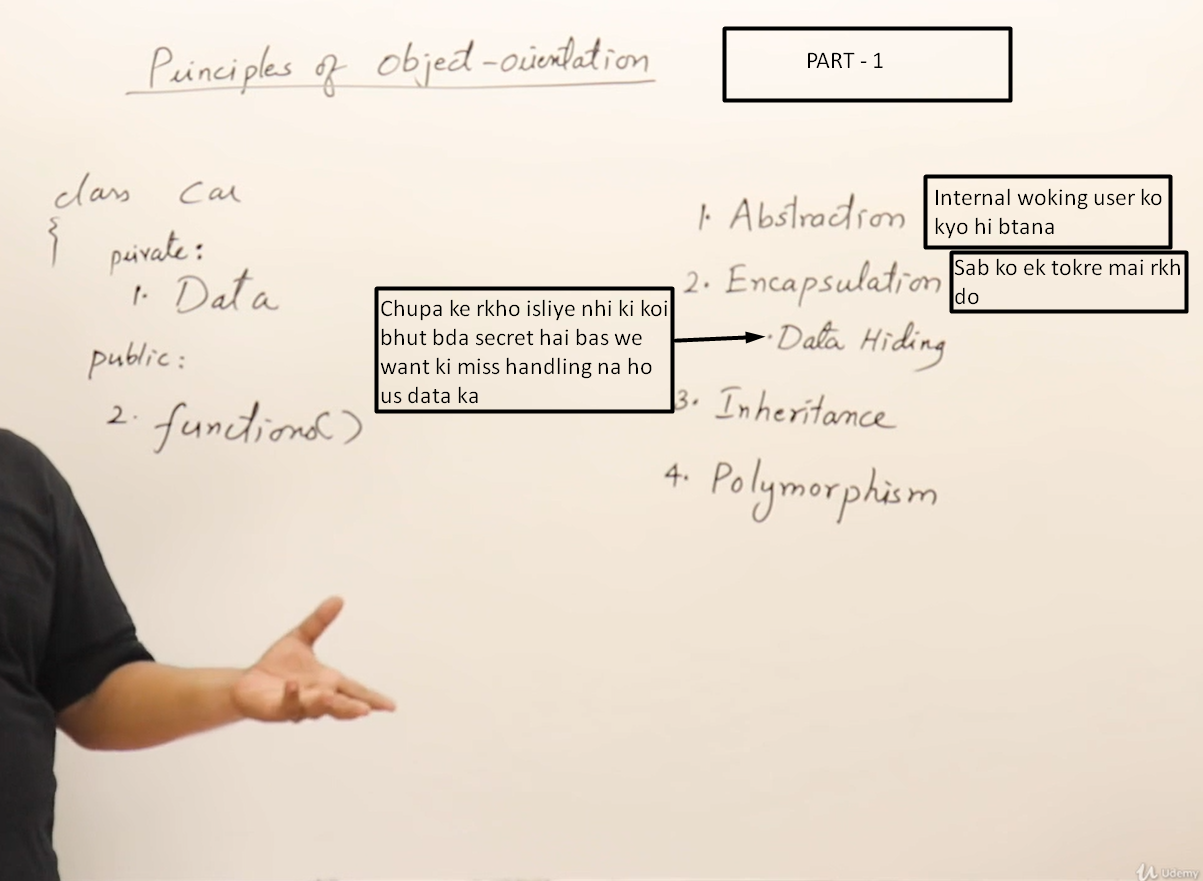 Principles of object-orientation
PART - 1
class Car
{
private:
1. Data
public:
2. functions()
1. Abstraction
Internal woking user ko
kyo hi btana
2. Encapsulation
Sab ko ek tokre mai rkh
do
Chupa ke rkho isliye nhi ki koi
bhut bda secret hai bas we
want ki miss handling na ho
us data ka
· Data Hiding
3. Inheritance
4. Polymorphism
Udemy